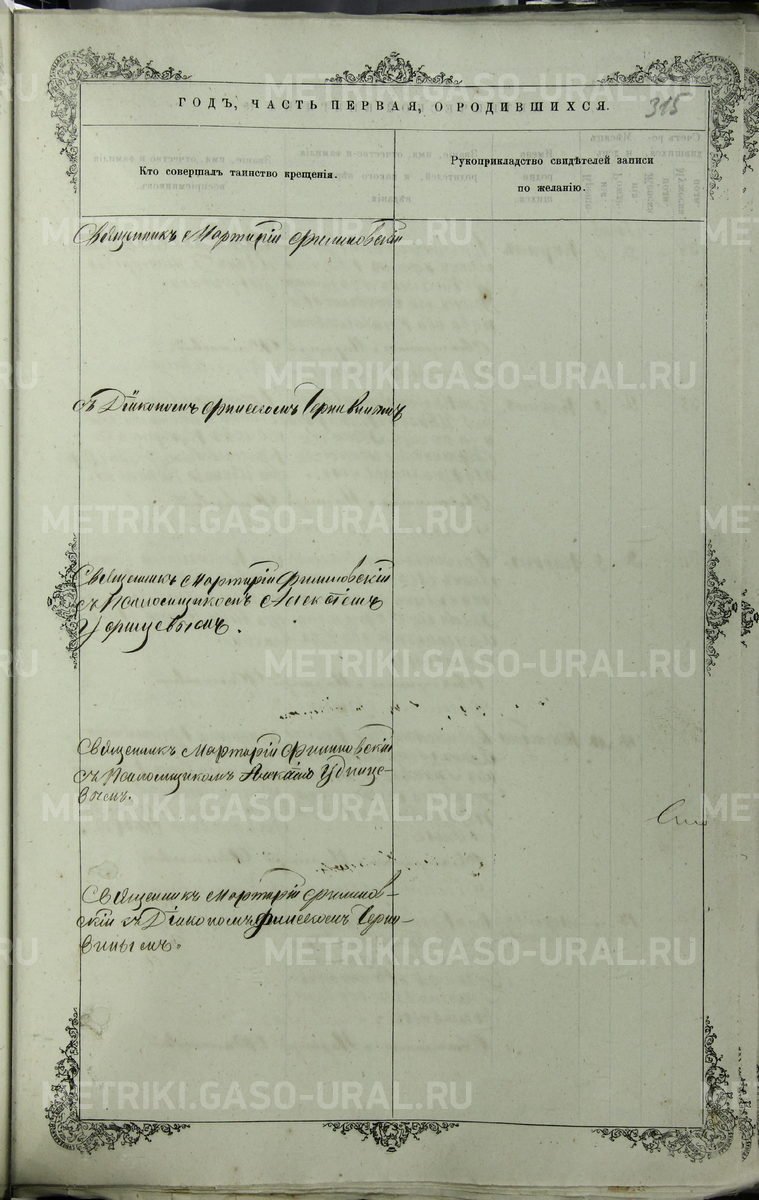 ГОДЪ, ЧАСТЬ ПЕРВАЯ, О РОДИВШИХСЯ.
315
Кто совершалъ таинство крещенія.
Рукоприкладство свидѣтелей записи
по желанію.
Священникъ Мартирій Филиновскій
съ Діакономъ Финеесомъ
Священникъ Мартирій Филиновскій
съ Псаломщикомъ Алексіемъ
Священникъ Мартирій Филиновскій
съ Псаломщикомъ Алексіемъ
Священникъ Мартирій Филинов-
скій съ Діакономъ Финеесомъ
METRIKI.GASO-URAL.RU